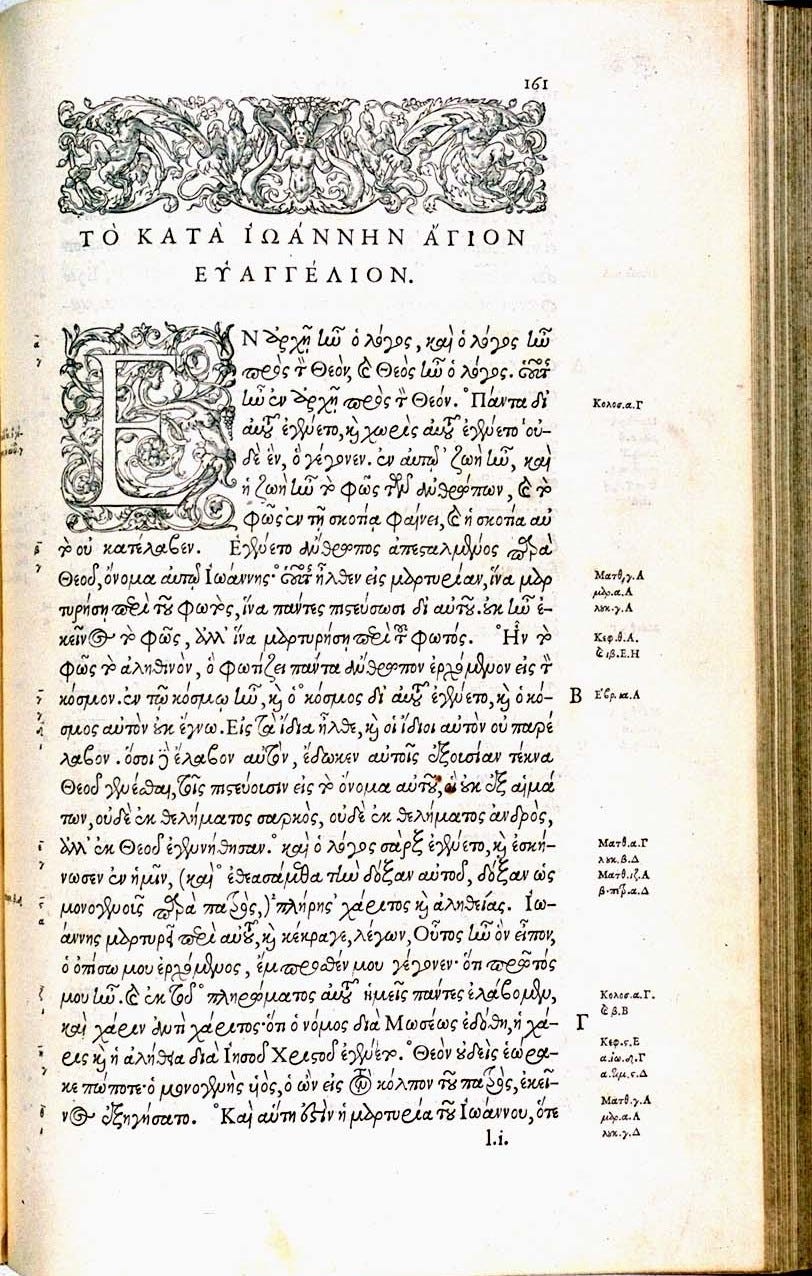 161
ΤῸ ΚΑΤᾺ ἸΩΆΝΝΗΝ ἍΓΙΟΝ
ΕΥ̓ΑΓΓΈΛΙΟΝ.
ΕΝ ἀρχῇ ἦν ὁ λόγος, καὶ ὁ λόγος ἦν
πρὸς τὸν Θεὸν, καὶ Θεὸς ἦν ὁ λόγος. οὗτος
ἦν ἐν ἀρχῇ πρὸς τὸν Θεόν. Πάντα δι
αὐτοῦ ἐγένετο, καὶ χωρὶς αὐτοῦ ἐγένετο οὐ-
δὲ ἓν, ὃ γέγονεν. ἐν αὐτῷ ζωὴ ἦν, καὶ
ἡ ζωὴ ἦν τὸ φῶς τῶν ἀνθρώπων, καὶ τὸ
φῶς ἐν τῇ σκοτίᾳ φαίνει, καὶ ἡ σκοτία αὐ
τὸ οὐ κατέλαβεν. Ἐγένετο ἄνθρωπος ἀπεσταλμένος παρὰ
Θεοῦ, ὄνομα αὐτῷ Ἰωάννης· οὗτος ἦλθεν εἰς μαρτυρίαν, ἵνα μαρ
τυρήσῃ περὶ τοῦ φωτὸς, ἵνα πάντες πιστεύσωσι δι αὐτοῦ. οὐκ ἦν ἐ-
κεῖνος τὸ φῶς, ἀλλ' ἵνα μαρτυρήσῃ περὶ τοῦ φωτός. Ἦν τὸ
φῶς τὸ ἀληθινὸν, ὃ φωτίζει πάντα ἄνθρωπον ἐρχόμενον εἰς τὸν
κόσμον. ἐν τῷ κόσμῳ ἦν, καὶ ὁ κόσμος δι αὐτοῦ ἐγένετο, καὶ ὁ κό-
σμος αὐτὸν οὐκ ἔγνω. Εἰς τὰ ἴδια ἦλθε, καὶ οἱ ἴδιοι αὐτὸν οὐ παρέ
λαβον. ὅσοι δὲ ἔλαβον αὐτὸν, ἔδωκεν αὐτοῖς ἐξουσίαν τέκνα
Θεοῦ γενέσθαι, τοῖς πιστεύουσιν εἰς τὸ ὄνομα αὐτοῦ, οἳ οὐκ ἐξ αἱμά
των, οὐδὲ ἐκ θελήματος σαρκὸς, οὐδὲ ἐκ θελήματος ἀνδρὸς,
ἀλλ' ἐκ Θεοῦ ἐγεννήθησαν. καὶ ὁ λόγος σὰρξ ἐγένετο, καὶ ἐσκή-
νωσεν ἐν ἡμῖν, (καὶ ἐθεασάμεθα τὴν δόξαν αὐτοῦ, δόξαν ὡς
μονογενοῦς παρὰ πατρὸς,) πλήρης χάριτος καὶ ἀληθείας. Ἰω-
άννης μαρτυρεῖ περὶ αὐτοῦ, καὶ κέκραγε, λέγων, Οὗτος ἦν ὃν εἶπον,
ὁ ὀπίσω μου ἐρχόμενος, ἔμπροσθέν μου γέγονεν· ὅτι πρῶτός
μου ἦν. καὶ ἐκ τοῦ πληρώματος αὐτοῦ ἡμεῖς πάντες ἐλάβομεν,
καὶ χάριν ἀντὶ χάριτος· ὅτι ὁ νόμος διὰ Μωσέως ἐδόθη, ἡ χά-
ρις καὶ ἡ ἀλήθεια διὰ Ἰησοῦ Χριστοῦ ἐγένετο. Θεὸν οὐδεὶς ἑώρα-
κε πώποτε· ὁ μονογενὴς υἱὸς, ὁ ὢν εἰς τὸν κόλπον τοῦ πατρὸς, ἐκεῖ-
νος ἐξηγήσατο. Καὶ αὕτη ἐστὶν ἡ μαρτυρία τοῦ Ἰωάννου, ὅτε
l.i.
Κολοσ.α.Γ
Ματθ.γ.Α
μαρ.α.Α
λουκ.γ.Α
Κεφ.θ.Α.
καὶ ιβ.Ε.Η
Β
Ἑβρ.ια.Α
Ματθ.α.Γ
λουκ.β.Δ
Ματθ.ιζ.Α
β.πέτρ.α.Δ
Κολοσ.α.Γ.
καὶ β.Β
Γ
Κεφ.ς.Ε
α.ἰω.δ.Γ
α.τιμ.ς.Δ
Ματθ.γ.Α
μαρ.α.Α
λουκ.γ.Δ